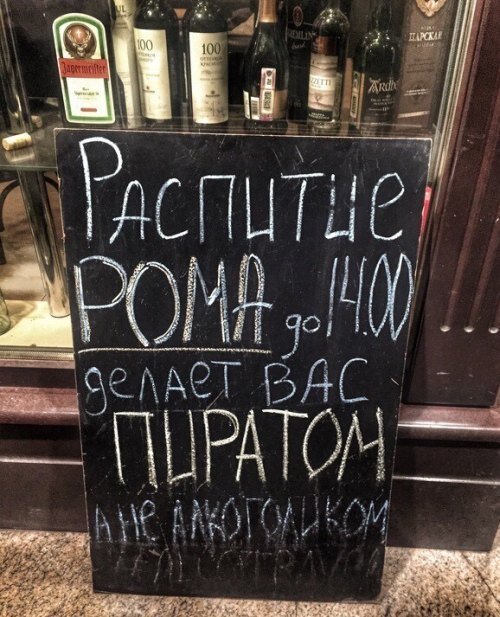 Jägermeister
100
100
ЦАРСКАЯ
Распитие
РОМА до 14.00
делает ВАС
ПИРАТОМ
А НЕ АЛКОГОЛИКОМ